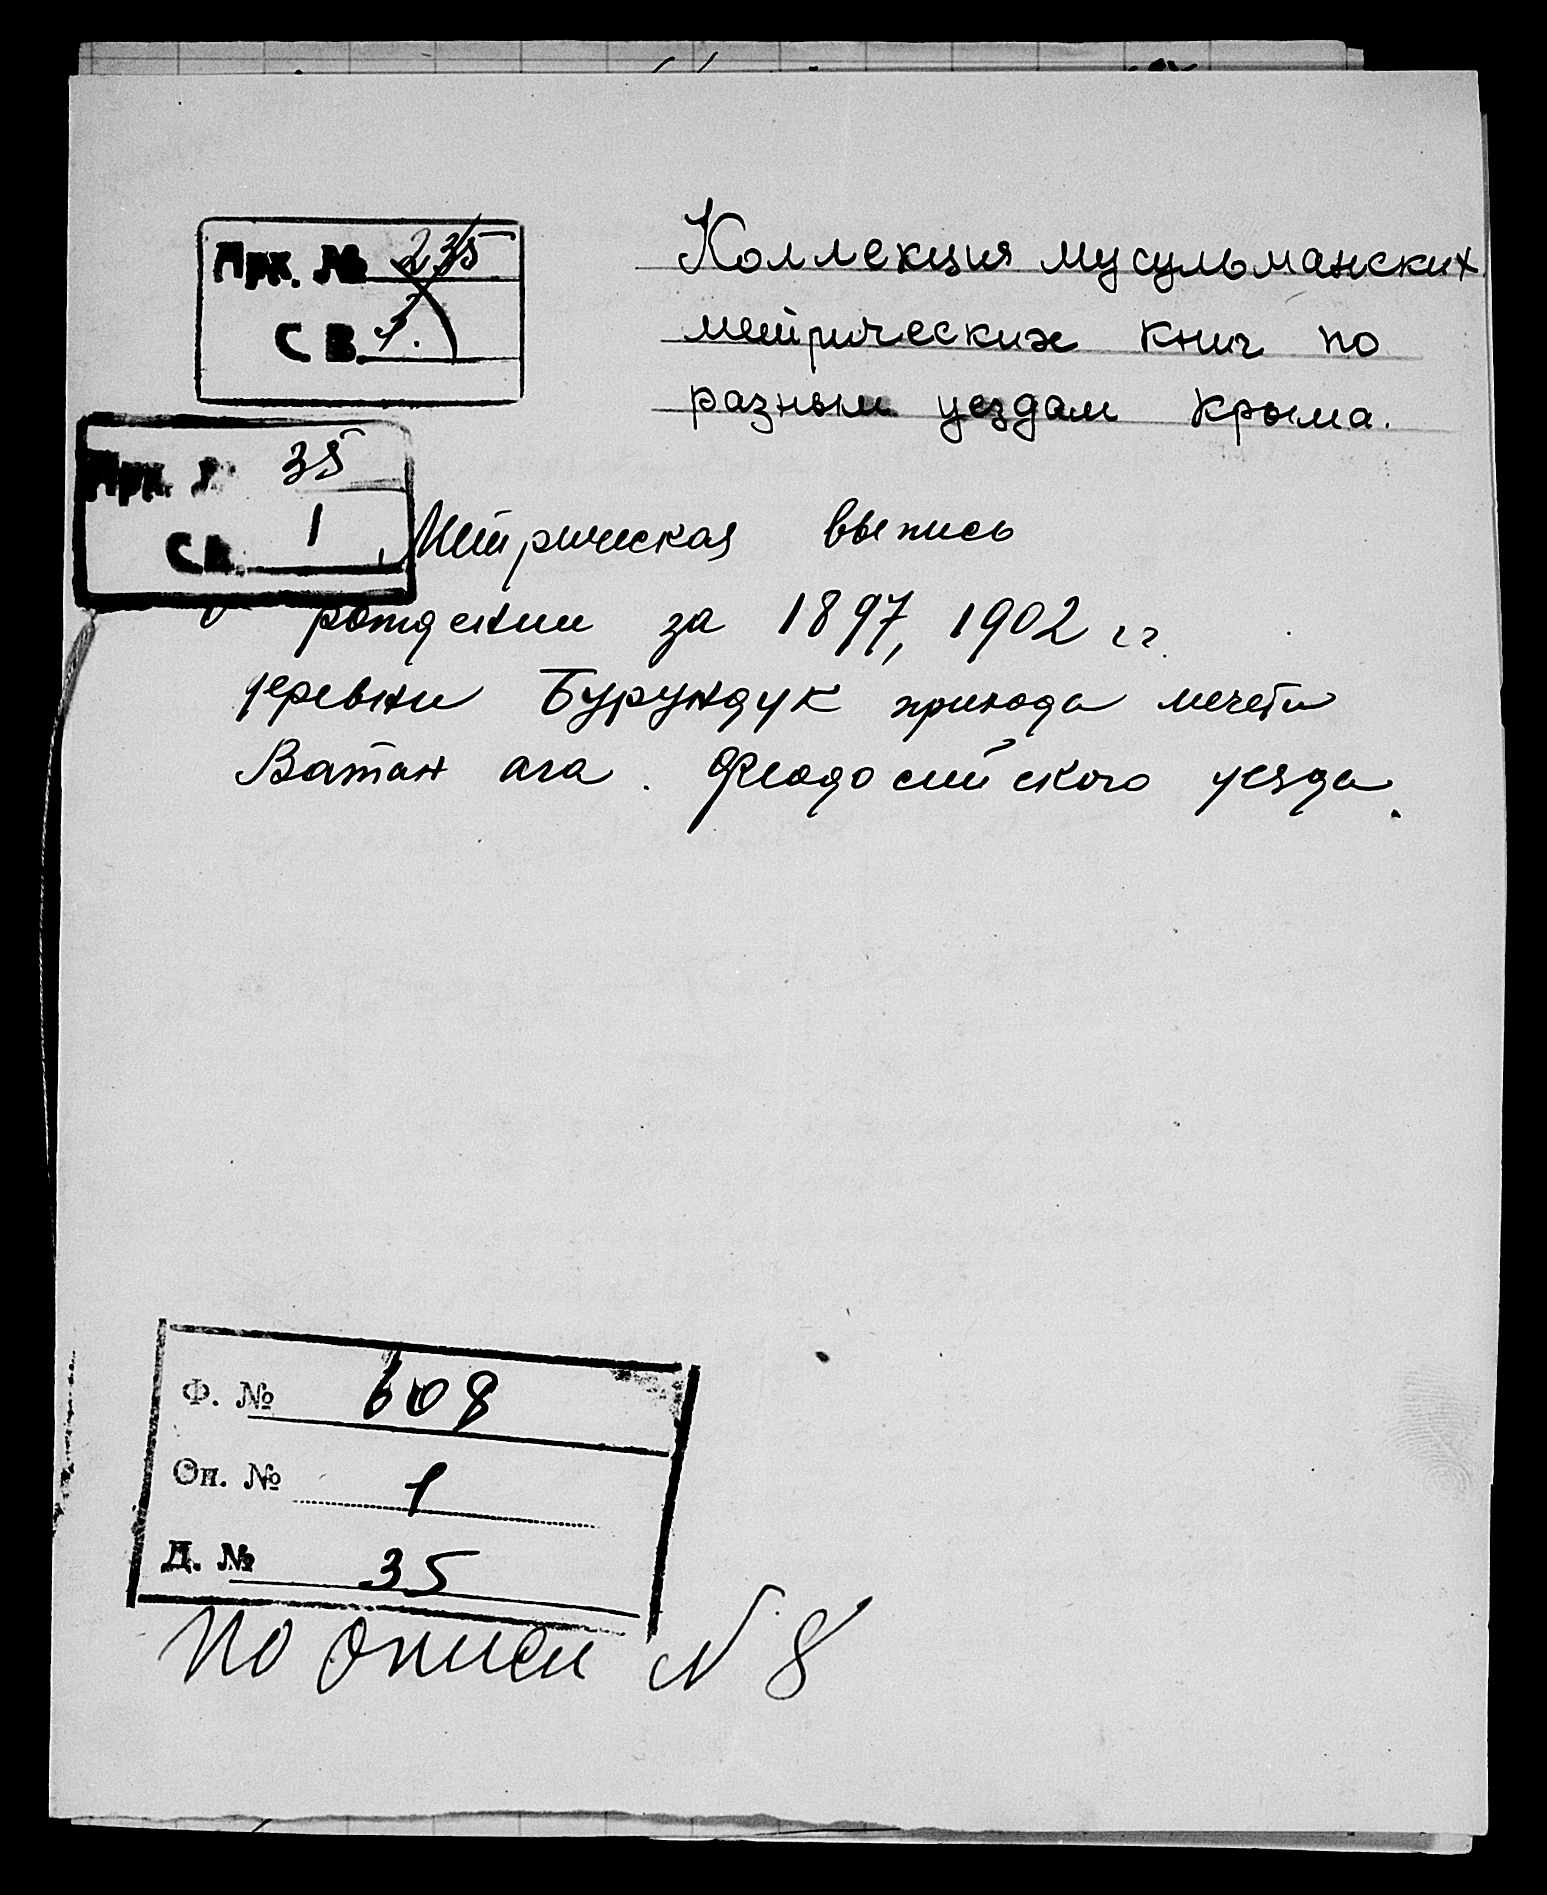 Арх. № 235
СВ. 3.
Коллекция мусульманских
метрических книг по
разным уездам Крыма.
Арх. № 35
СВ. 1
Метрическая выпись
о рождении за 1897, 1902 гг.
деревни Бурундук прихода мечети
Ватан ага. Феодосийского уезда.
Ф. № 608
Оп. № 1
Д. № 35
по описи № 8